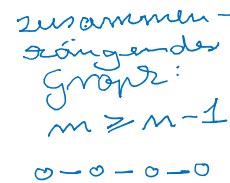 zusammen-
hängender
Graph:
m ≥ n - 1